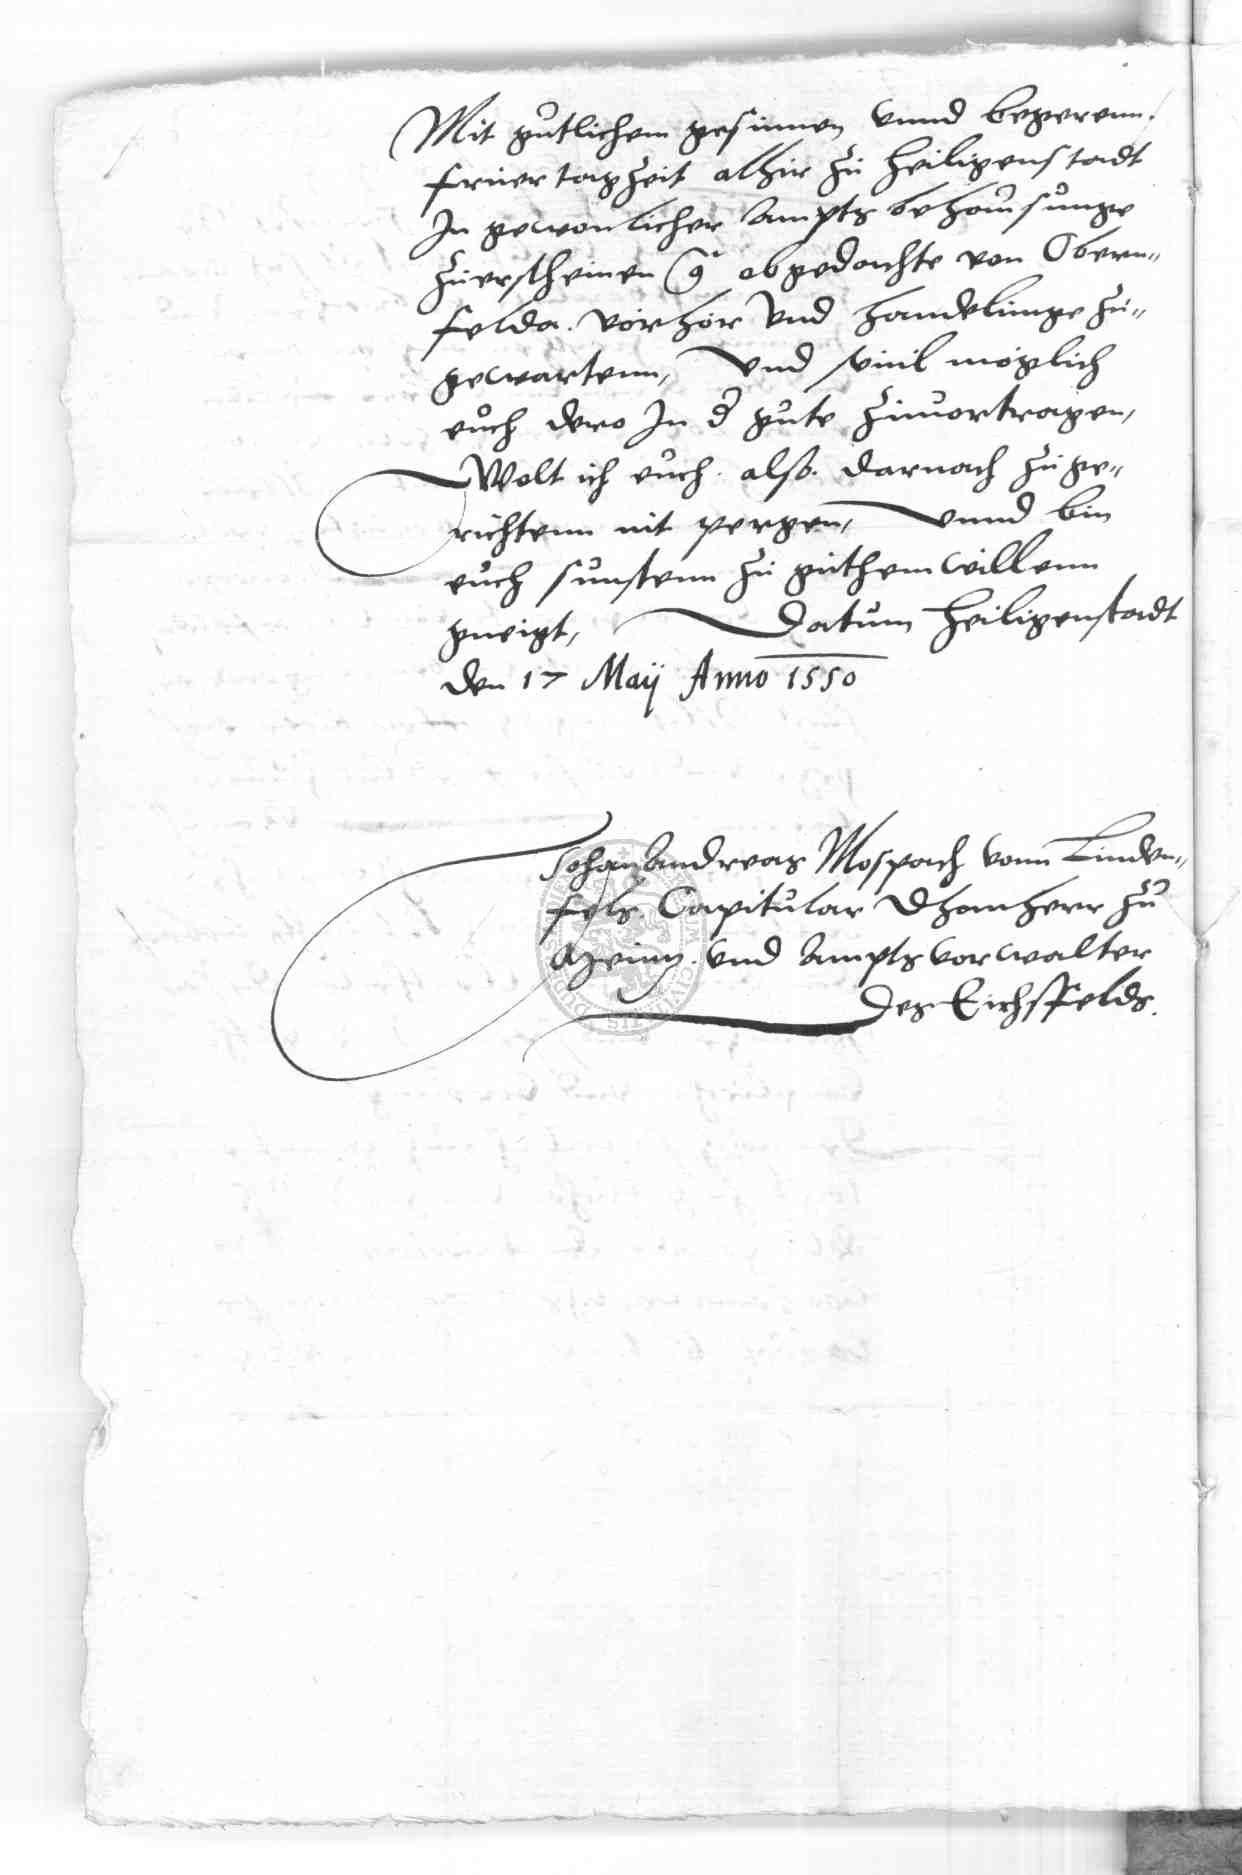 Mit gutlichem gesinnen vnnd begerenn.
fruer tagzeit alhir zu Heiligenstadt
In gewonlicher Ampts behausunge
zuerscheinen abgedachte von Obern-
felda. vorhor vnd handelunge zu-
gewartenn, vnd souil moglich
euch dero In d gute zuuortragen,
Wolt ich euch. also. darnach zu ge-
richtenn nit pergen, vnnd bin
euch sunstenn zu guthem willenn
gneigt, Datum Heiligenstadt
den 17 Maij Anno 1550
Johan Andreas Mospach vonn Linden-
fels. Capitular Dhomherr zu
Meintz. vnd Ampts vorwalter
des Eichsfelds.